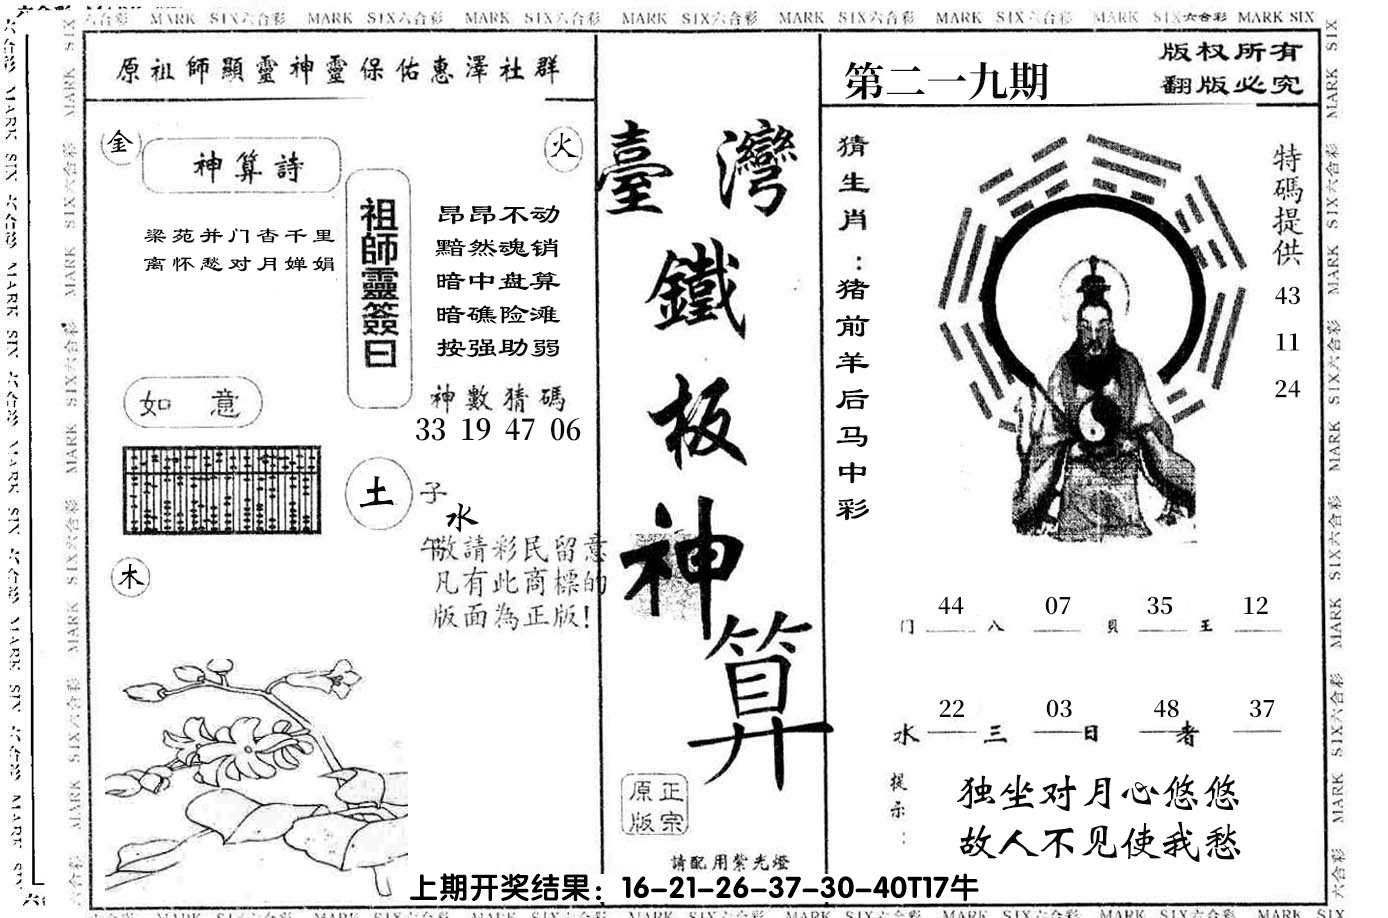 MARK SIX六合彩 MARK SIX六合彩 MARK SIX六合彩 MARK SIX六合彩 MARK SIX六合彩 MARK SIX六合彩 MARK SIX六合彩 MARK SIX
原祖師顯靈神靈保佑惠澤社群
金
神算詩
火
梁苑并门杳千里
离怀愁对月婵娟
祖師靈簽曰
昂昂不动
黯然魂销
暗中盘算
暗礁险滩
按强助弱
神數猜碼
33 19 47 06
如 意
土
子
水
午
敬請彩民留意
凡有此商標的
版面為正版!
木
臺灣
鐵
板
神
算
正宗
原版
請配用紫光燈
第二一九期
版权所有
翻版必究
猜生肖:猪前羊后马中彩
特碼提供
43
11
24
44 07 35 12
门 八 贝 王
22 03 48 37
水 三 日 者
提示:
独坐对月心悠悠
故人不见使我愁
上期开奖结果：16-21-26-37-30-40T17牛